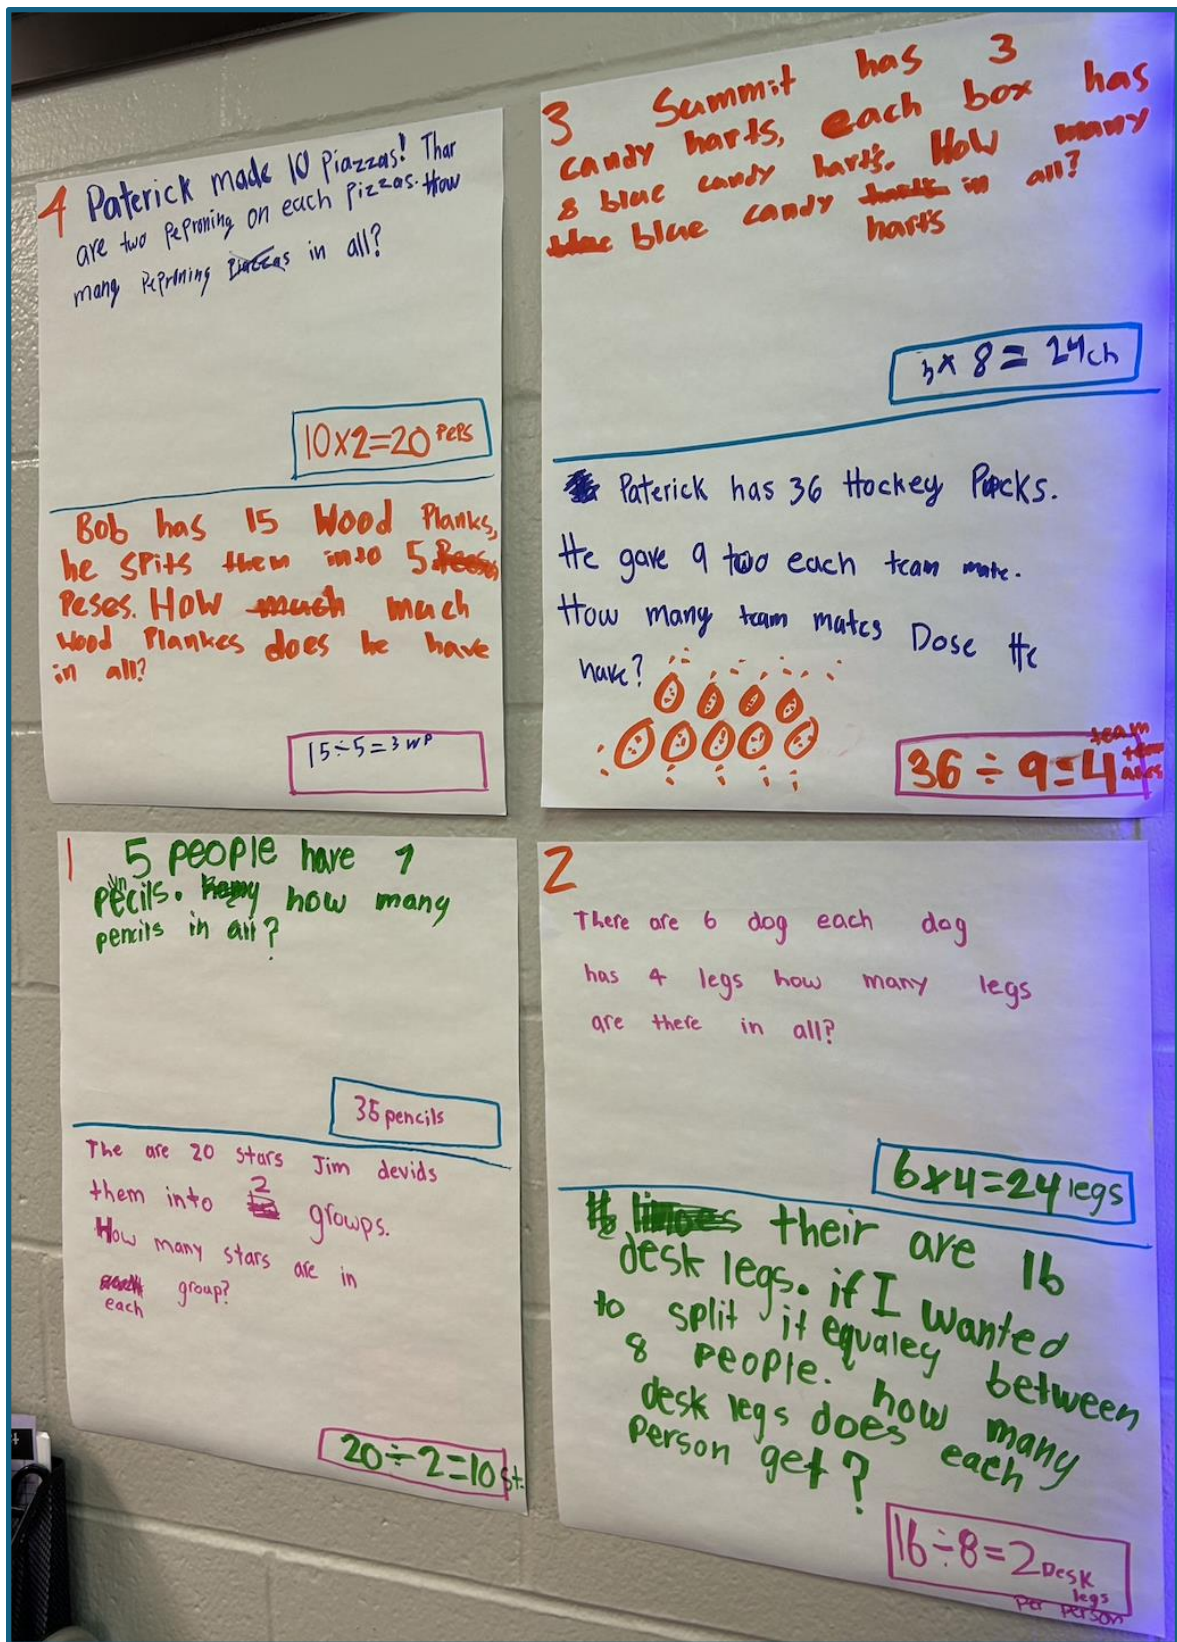 4 Paterick made 10 Piazzas! Thar
are two peproning on each pizzas. How
many peproning in all?
10x2=20 Peps
Bob has 15 Wood Planks,
he spits them into 5
Peses. How much
wood Plankes does he have
in all?
15÷5=3 WP
3 Summit has 3
candy harts, each box has
8 blue candy harts. How many
blue candy in all?
harts
3x8=24ch
Paterick has 36 Hockey Pucks.
He gave 9 two each team mate.
How many team mates Dose He
have?
36 ÷ 9=4 team
1 5 people have 7
pecils. how many
pencils in all?
35 pencils
The are 20 stars Jim devids
them into 2 groups.
How many stars are in
each group?
20÷2=10 st.
2
There are 6 dog each dog
has 4 legs how many legs
are there in all?
6x4=24 legs
their are 16
desk legs. if I wanted
to split it equaley between
8 people. how many
desk legs does each
person get?
16÷8=2 Desk
legs
per person